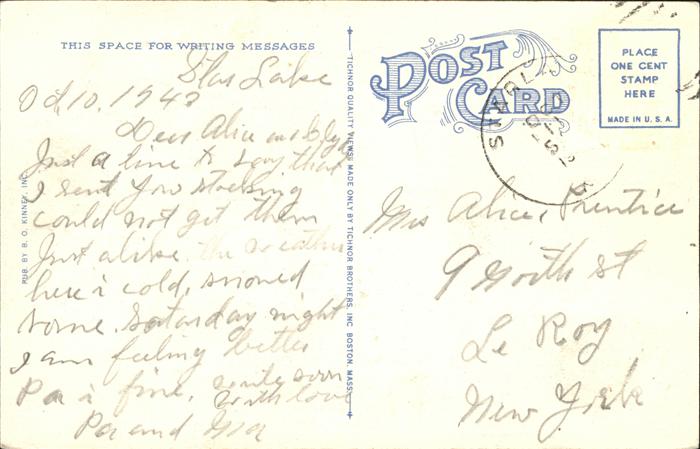 THIS SPACE FOR WRITING MESSAGES
Star Lake
Oct. 10. 1942
Dear Alice and
Just a line to say that
I sent you stocking
could not get them
Just alike. the weather
here is cold, snowed
some. Saturday night
I am feeling better
Pa is fine. write soon
with love
Pa and Ma
PUB. BY B. O. KINNEY, INC.
TICHNOR QUALITY VIEWS MADE ONLY BY TICHNOR BROTHERS, INC. BOSTON, MASS.
POST CARD
PLACE
ONE CENT
STAMP
HERE
MADE IN U. S. A.
Mrs Alice, Prentice
9 North St
Le Roy
New York